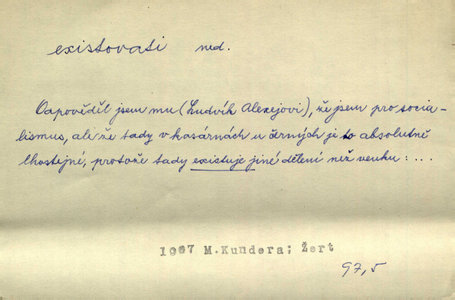 existovati ned.
Odpověděl jsem mu (Ludvík Alexejovi), že jsem pro socia-
lismus, ale že tady v kasárnách u černých je to absolutně
lhostejné, protože tady existuje jiné dělení než venku: ....
1967 M.Kundera; Žert
97,5